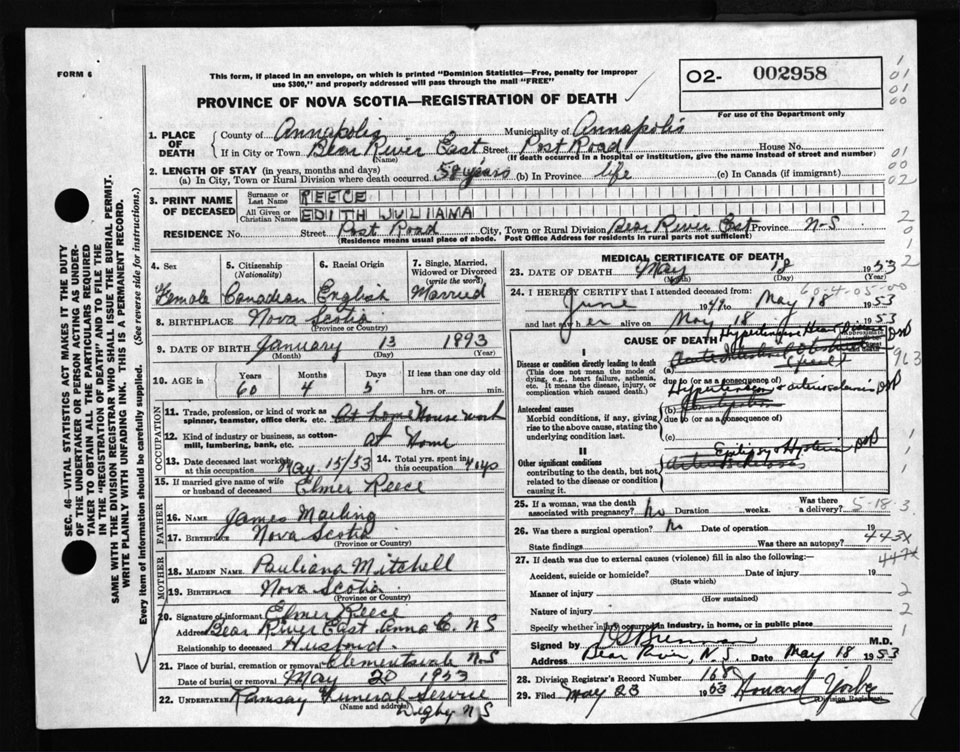 FORM 6
This form, if placed in an envelope, on which is printed "Dominion Statistics—Free, penalty for improper
use $300," and properly addressed will pass through the mail "FREE"
PROVINCE OF NOVA SCOTIA—REGISTRATION OF DEATH
O2- 002958
For use of the Department only
1. PLACE OF DEATH
County of Annapolis Municipality of Annapolis
If in City or Town Bear River East Street Post Road House No.
(Name) (If death occurred in a hospital or institution, give the name instead of street and number)
2. LENGTH OF STAY (in years, months and days)
(a) In City, Town or Rural Division where death occurred 58 years (b) In Province life (c) In Canada (if immigrant)
3. PRINT NAME OF DECEASED
Surname or Last Name REECE
All Given or Christian Names EDITH JULIANA
RESIDENCE No. Street Post Road City, Town or Rural Division Bear River East Province N-S
(Residence means usual place of abode. Post Office Address for residents in rural parts not sufficient)
4. Sex Female
5. Citizenship (Nationality) Canadian
6. Racial Origin English
7. Single, Married, Widowed or Divorced (write the word) Married
8. BIRTHPLACE Nova Scotia
(Province or Country)
9. DATE OF BIRTH January 13 1893
(Month) (Day) (Year)
10. AGE in Years 60 Months 4 Days 5 If less than one day old
hrs. or min.
OCCUPATION
11. Trade, profession, or kind of work as spinner, teamster, office clerk, etc. At home House work
12. Kind of industry or business, as cotton-mill, lumbering, bank, etc. at Home
13. Date deceased last worked at this occupation May 15/53
14. Total yrs. spent in this occupation 40 yrs
15. If married give name of wife or husband of deceased Elmer Reece
FATHER
16. NAME James
17. BIRTHPLACE Nova Scotia
(Province or Country)
MOTHER
18. MAIDEN NAME Pauliana Mitchell
19. BIRTHPLACE Nova Scotia
(Province or Country)
20. Signature of informant Elmer Reece
Address Bear River East Anna Co. NS
Relationship to deceased Husband.
21. Place of burial, cremation or removal N.S
Date of burial or removal May 20 1953
22. UNDERTAKER Ramsay Funeral Service
(Name and address) Digby N S
MEDICAL CERTIFICATE OF DEATH
23. DATE OF DEATH May 18 1953
(Month) (Day) (Year)
60-4-05-00
24. I HEREBY CERTIFY that I attended deceased from:
June 1949 to May 18 1953
and last saw her alive on May 18 1953
CAUSE OF DEATH
Hypertensive Heart Disease
I
Disease or condition directly leading to death
(This does not mean the mode of dying, e.g., heart failure, asthenia, etc. It means the disease, injury, or complication which caused death.)
(a)
due to (or as a consequence of)
Hypertension
Antecedent causes
Morbid conditions, if any, giving rise to the above cause, stating the underlying condition last.
(b)
due to (or as a consequence of)
(c)
II
Other significant conditions
contributing to the death, but not related to the disease or condition causing it.
Epilepsy
25. If a woman, was the death associated with pregnancy? No Duration weeks. Was there a delivery?
5-18-3
26. Was there a surgical operation? No Date of operation 19
State findings Was there an autopsy?
443X
27. If death was due to external causes (violence) fill in also the following:—
Accident, suicide or homicide? Date of injury 19
(State which)
Manner of injury
(How sustained)
Nature of injury
Specify whether injury occurred in industry, in home, or in public place
Signed by M.D.
Address Bear River, N.S. Date May 18 1953
28. Division Registrar's Record Number 168
29. Filed May 23 1953 Howard
Division Registrar
SEC. 46—VITAL STATISTICS ACT MAKES IT THE DUTY
OF THE UNDERTAKER OR PERSON ACTING AS UNDER-
TAKER TO OBTAIN ALL THE PARTICULARS REQUIRED
IN THE "REGISTRATION OF DEATH" AND TO FILE THE
SAME WITH THE DIVISION REGISTRAR WHO SHALL ISSUE THE BURIAL PERMIT.
WRITE PLAINLY WITH UNFADING INK. THIS IS A PERMANENT RECORD.
Every item of information should be carefully supplied. (See reverse side for instructions.)